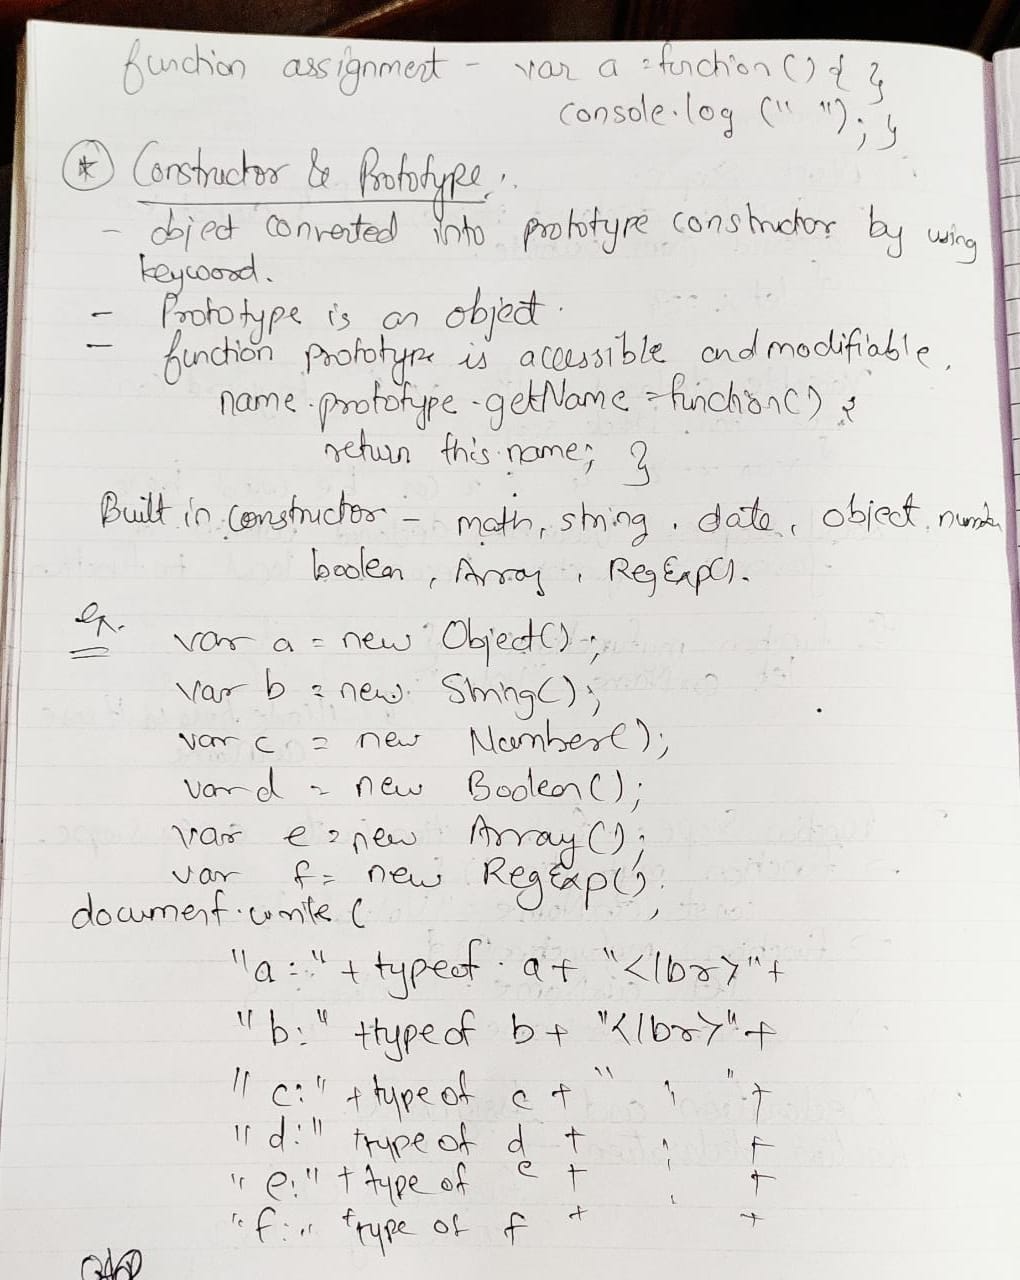 function assignment - var a = function () { }
console.log (" "); }
* Constructor & Prototype :
- object converted into prototype constructor by using
keyword.
- Prototype is an object.
- function prototype is accessible and modifiable.
name.prototype.getName = function() {
return this.name; }
Built in constructor - math, string, date, object, number
boolean, Array, RegExp().
ex. var a = new Object();
var b = new String();
var c = new Number();
var d = new Boolean();
var e = new Array();
var f = new RegExp();
document.write (
"a:" + typeof a + "</br>" +
"b:" + typeof b + "</br>" +
"c:" + type of c + " " +
"d:" type of d + +
"e:" + type of e + +
"f:" type of f + +